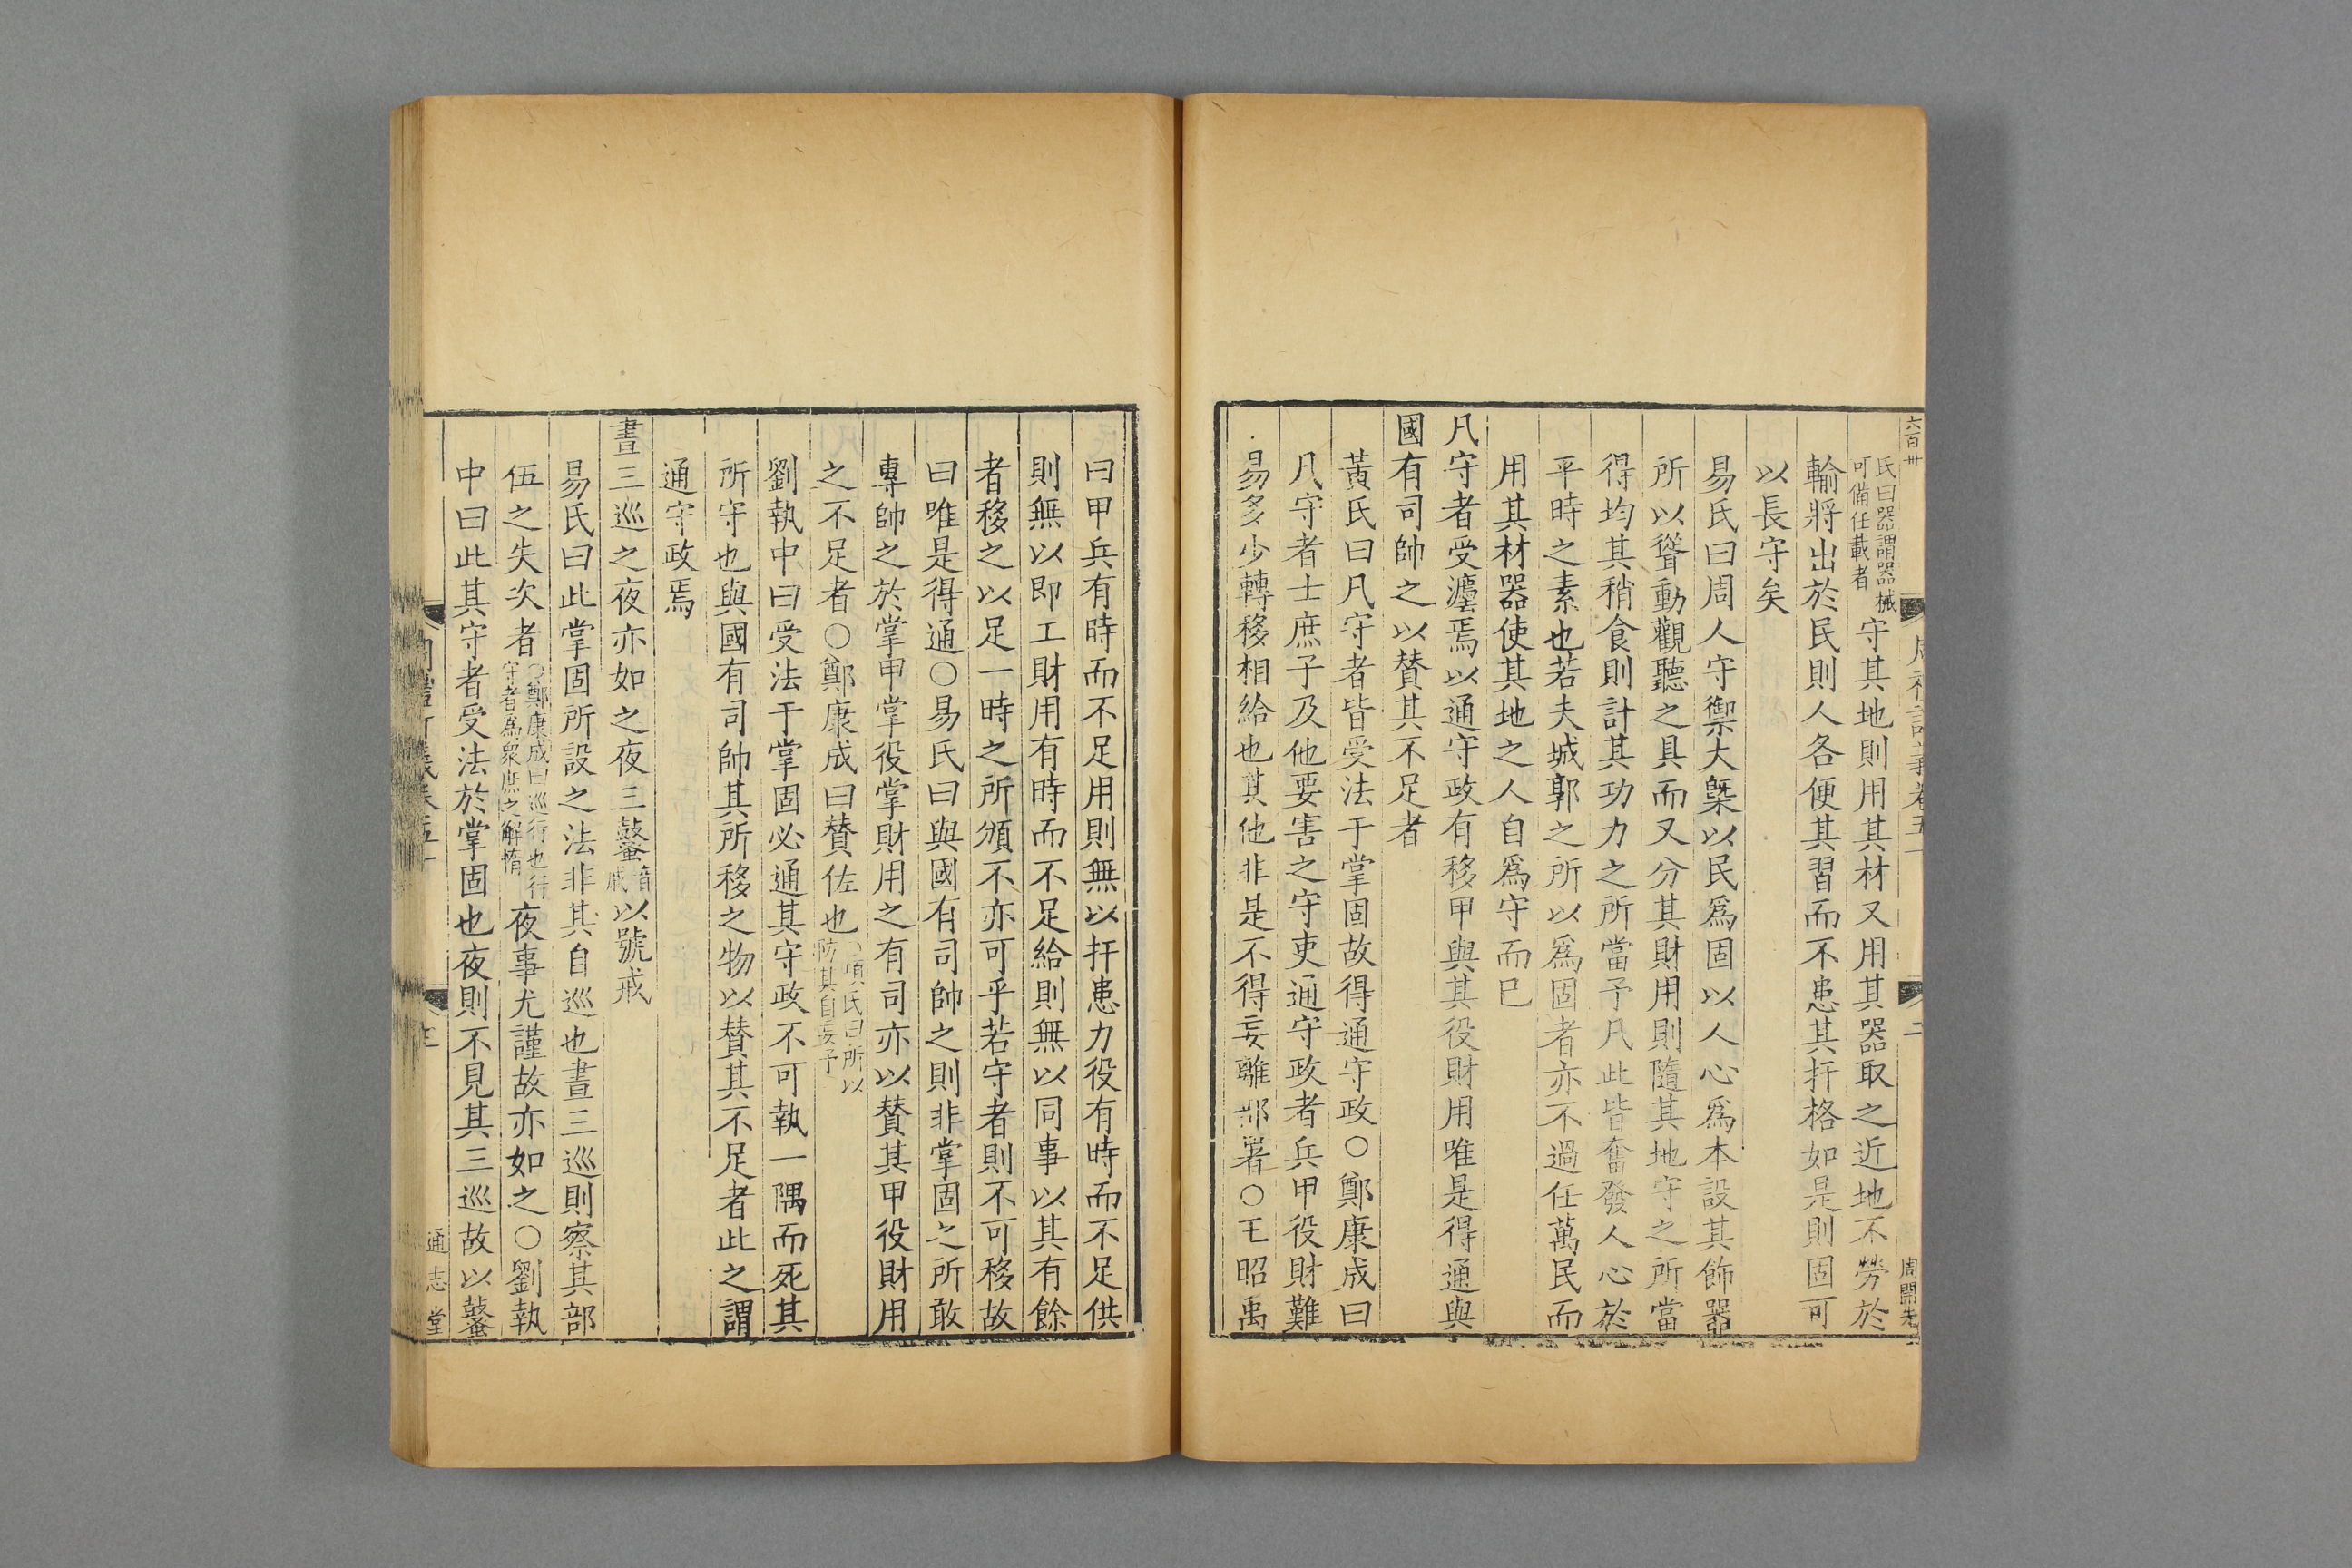 六百卅
周禮訂義卷五十
二
周開先
氏曰器謂器械
可備任載者
守其地則用其材又用其器取之近地不勞於
輸將出於民則人各便其習而不患其扞格如是則固可
以長守矣
易氏曰周人守禦大槩以民爲固以人心爲本設其飾器
所以聳動觀聽之具而又分其財用則隨其地守之所當
得均其稍食則計其功力之所當予凡此皆奮發人心於
平時之素也若夫城郭之所以爲固者亦不過任萬民而
用其材器使其地之人自爲守而已
凡守者受灋焉以通守政有移甲與其役財用唯是得通與
國有司帥之以贊其不足者
黃氏曰凡守者皆受法于掌固故得通守政○鄭康成曰
凡守者士庶子及他要害之守吏通守政者兵甲役財難
易多少轉移相給也其他非是不得妄離部署○王昭禹
曰甲兵有時而不足用則無以扞患力役有時而不足供
則無以即工財用有時而不足給則無以同事以其有餘
者移之以足一時之所頒不亦可乎若守者則不可移故
曰唯是得通○易氏曰與國有司帥之則非掌固之所敢
專帥之於掌甲掌役掌財用之有司亦以贊其甲役財用
之不足者○鄭康成曰贊佐也
○項氏曰所以
防其自妄予
劉執中曰受法于掌固必通其守政不可執一隅而死其
所守也與國有司帥其所移之物以贊其不足者此之謂
通守政焉
晝三巡之夜亦如之夜三鼜
戚
以號戒
易氏曰此掌固所設之法非其自巡也晝三巡則察其部
伍之失次者
○鄭康成曰巡行也行
守者爲衆庶之解惰
夜事尤謹故亦如之○劉執
中曰此其守者受法於掌固也夜則不見其三巡故以鼜
周禮訂義卷五十
通志堂